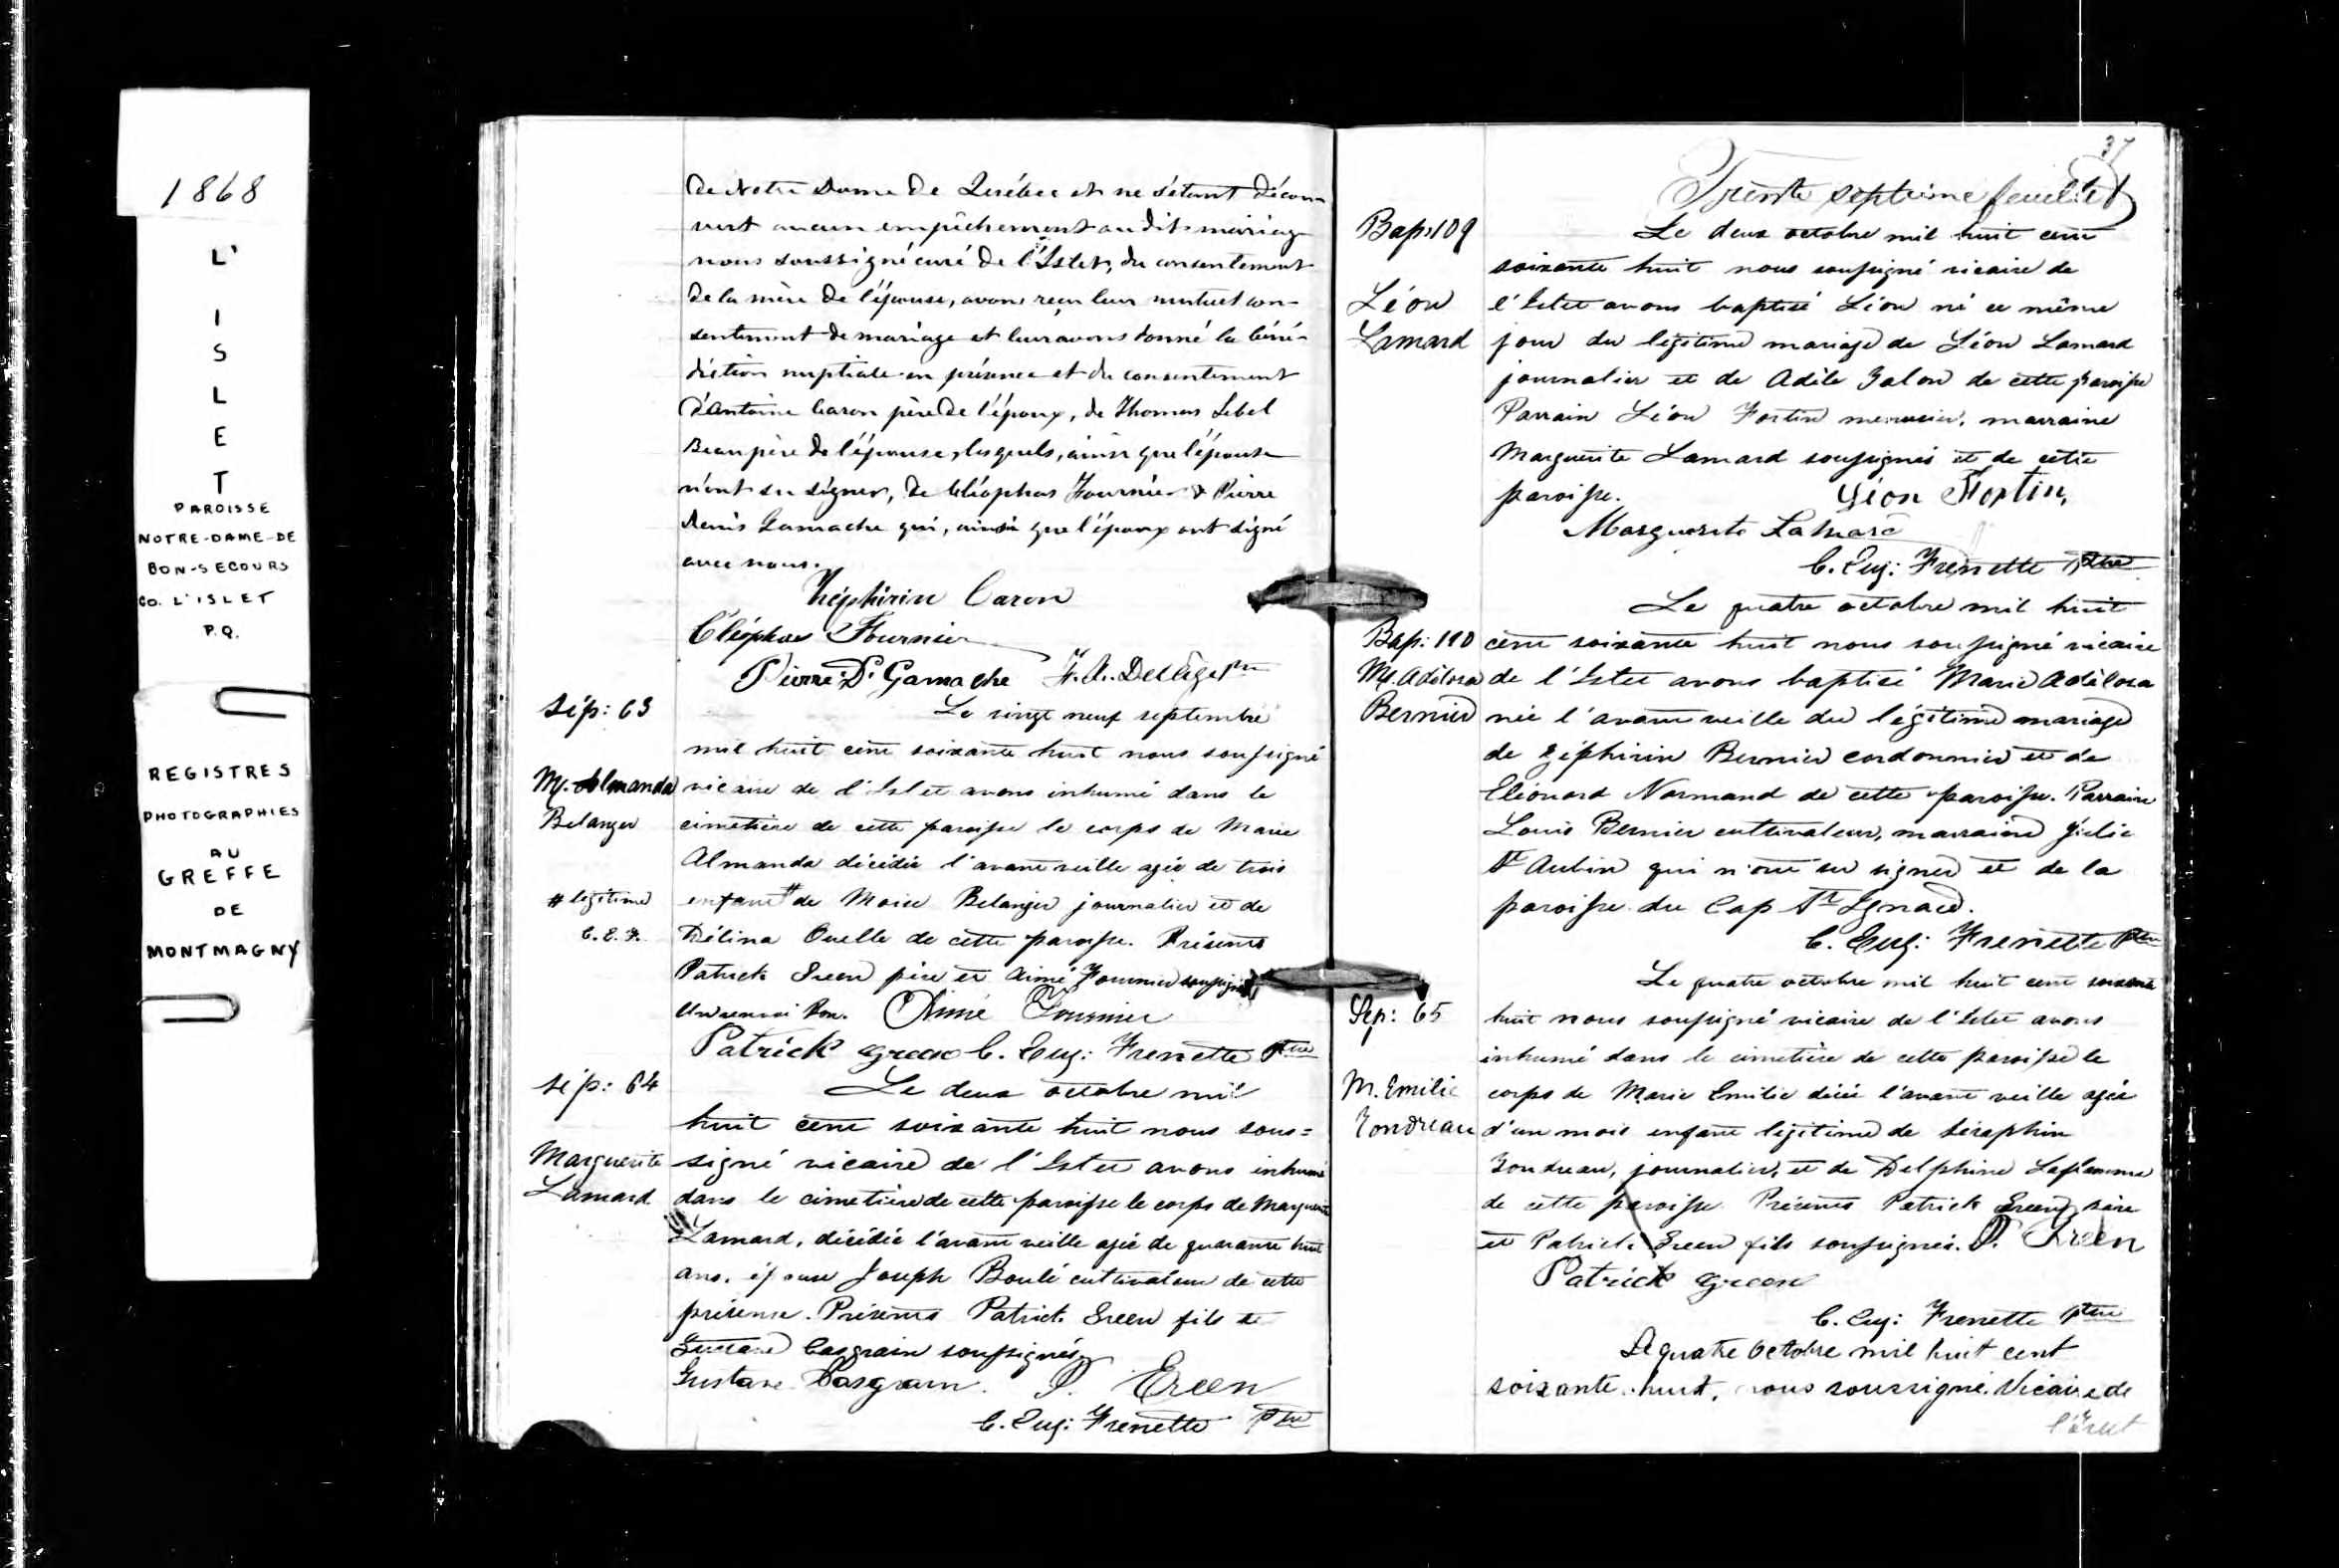 1868
L'
I
S
L
E
T
PAROISSE
NOTRE-DAME-DE
BON-SECOURS
CO. L'ISLET
P.Q.
REGISTRES
PHOTOGRAPHIES
AU
GREFFE
DE
MONTMAGNY
de Notre Dame de Québec et ne s'étant décou-
vert aucun empêchement au dit mariage
nous soussigné curé de l'Islet, du consentement
de la mère de l'épouse, avons reçu leur mutuel con-
sentement de mariage et leur avons donné la béné-
diction nuptiale en présence et du consentement
d'Antoine Caron père de l'époux, de Thomas Lebel
Beaupère de l'épouse, lesquels, ainsi que l'épouse
n'ont su signer, de Cléophas Fournier & Pierre
Denis Gamache qui, ainsi que l'époux ont signé
avec nous.
Zéphirin Caron
Cléophas Fournier
Pierre D. Gamache F. X. Delâge Ptre
Sép: 63
Le vingt neuf septembre
mil huit cent soixante huit nous soussigné
M. Almanda vicaire de l'Islet avons inhumé dans le
Belanger cimetière de cette paroisse le corps de Marie
Almanda décédée l'avant veille agée de trois
# légitime enfant # de Moise Belanger journalier et de
C. E. F. Délina Ouelle de cette paroisse. Présents
Patrick Green père et Aimé Fournier soussignés
Un renvoi bon. Aimé Fournier
Patrick green C. Eug: Frenette Ptre
Sép: 64 Le deux octobre mil
huit cent soixante huit nous sous=
Marguerite signé vicaire de l'Islet avons inhumé
Lamard dans le cimetière de cette paroisse le corps de Marguerite
Lamard, décédée l'avant veille agée de quarante huit
ans, épouse Joseph Boulé cultivateur de cette
présense. Présents Patrick Green fils et
Gustave Casgrain soussignés
Gustave Casgrain. P. Green
C. Eug: Frenette Ptre
37
Trente septième feuillet
Bap: 109 Le deux octobre mil huit cent
soixante huit nous soussigné vicaire de
Léon l'Islet avons baptisé Léon né ce même
Lamard jour du légitime mariage de Léon Lamard
journalier et de Adèle Talon de cette paroisse
Parrain Léon Fortin menuisier, marraine
Marguerite Lamard soussignés et de cette
paroisse. Léon Fortin,
Marguerite Lamare
C. Eug: Frenette Ptre
Le quatre octobre mil huit
Bap: 110 cent soixante huit nous soussigné vicaire
M. Adélosa de l'Islet avons baptisé Marie Adélosa
Bernier née l'avant veille du légitime mariage
de Zéphirin Bernier cordonnier et de
Eléonard Normand de cette paroisse. Parrain
Louis Bernier cultivateur, marraine Julie
St Aubin qui n'ont su signer et de la
paroisse du Cap St Ignace.
C. Eug: Frenette Ptre
Le quatre octobre mil huit cent soixante
Sep: 65 huit nous soussigné vicaire de l'Islet avons
inhumé dans le cimetière de cette paroisse le
M. Emilie corps de Marie Emilie décée l'avant veille agée
Tondreau d'un mois enfant légitime de Séraphin
Tondreau, journalier, et de Delphine Laflamme
de cette paroisse. Présents Patrick Green père
et Patrick Green fils soussignés. P. Green
Patrick green
C. Eug: Frenette Ptre
Le quatre Octobre mil huit cent
soixante-huit, nous soussigné Vicaire de
l'Islet